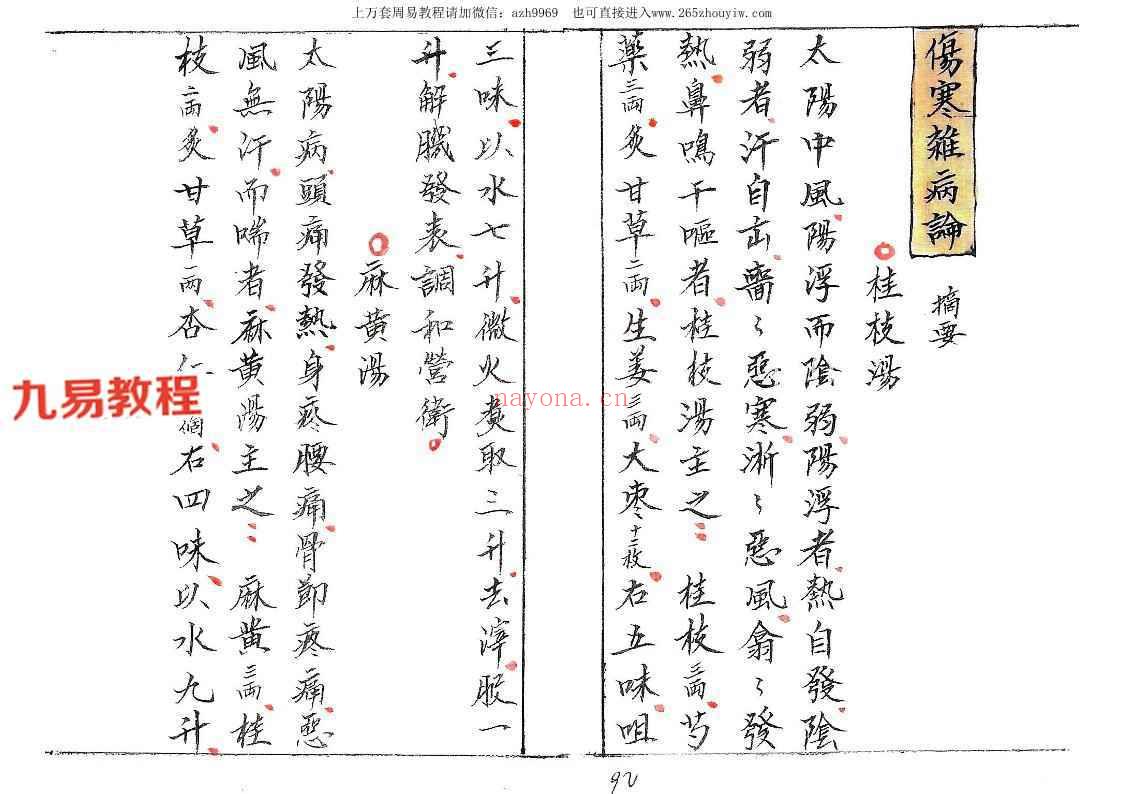 上万套周易教程请加微信：azh9969　也可直接进入www.265zhouyiw.com
傷寒雜病論
摘要
桂枝湯
太陽中風陽浮而陰弱陽浮者熱自發陰
弱者汗自出嗇〻惡寒淅〻惡風翕〻發
熱鼻鳴干嘔者桂枝湯主之 桂枝三兩芍
藥三兩炙甘草二兩生姜三兩大棗十二枚右五味咀
三味以水七升微火煑取三升去滓服一
升解職發表調和營衛
麻黄湯
太陽病頭痛發熱身疼腰痛骨節疼痛惡
風無汗而喘者麻黄湯主之 麻黄三兩桂
枝二兩炙甘草一兩杏仁個右四味以水九升
九易教程
nayona.cn
92